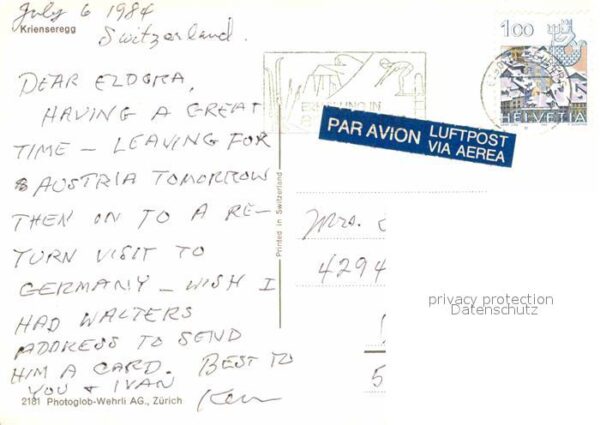 July 6 1984
Krienseregg
Switzerland.
DEAR ELDORA,
HAVING A GREAT
TIME – LEAVING FOR
AUSTRIA TOMORROW
THEN ON TO A RE–
TURN VISIT TO
GERMANY – WISH I
HAD WALTERS
ADDRESS TO SEND
HIM A CARD. BEST TO
YOU + IVAN
Ken
2181 Photoglob-Wehrli AG., Zürich
Printed in Switzerland
100
HELVETIA
PAR AVION LUFTPOST
VIA AEREA
Mrs.
4294
5
privacy protection
Datenschutz